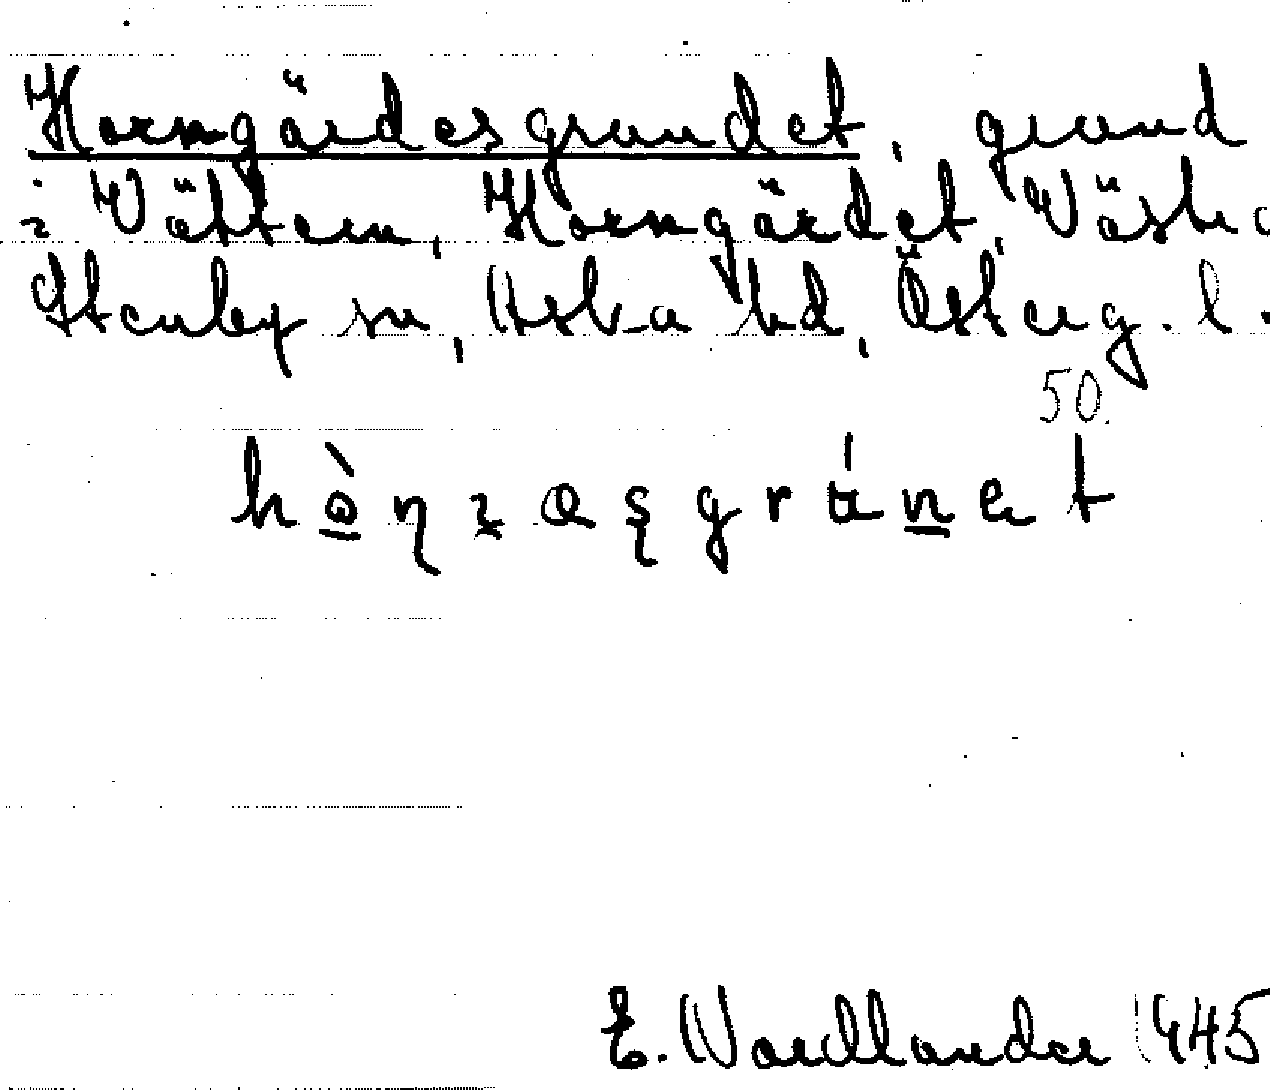 Horngärdesgrundet, grund
i Vättern, Horngärdet, Västra
Stenby sn, Aska hd, Österg. l.
50.
E. Nordlander 1945